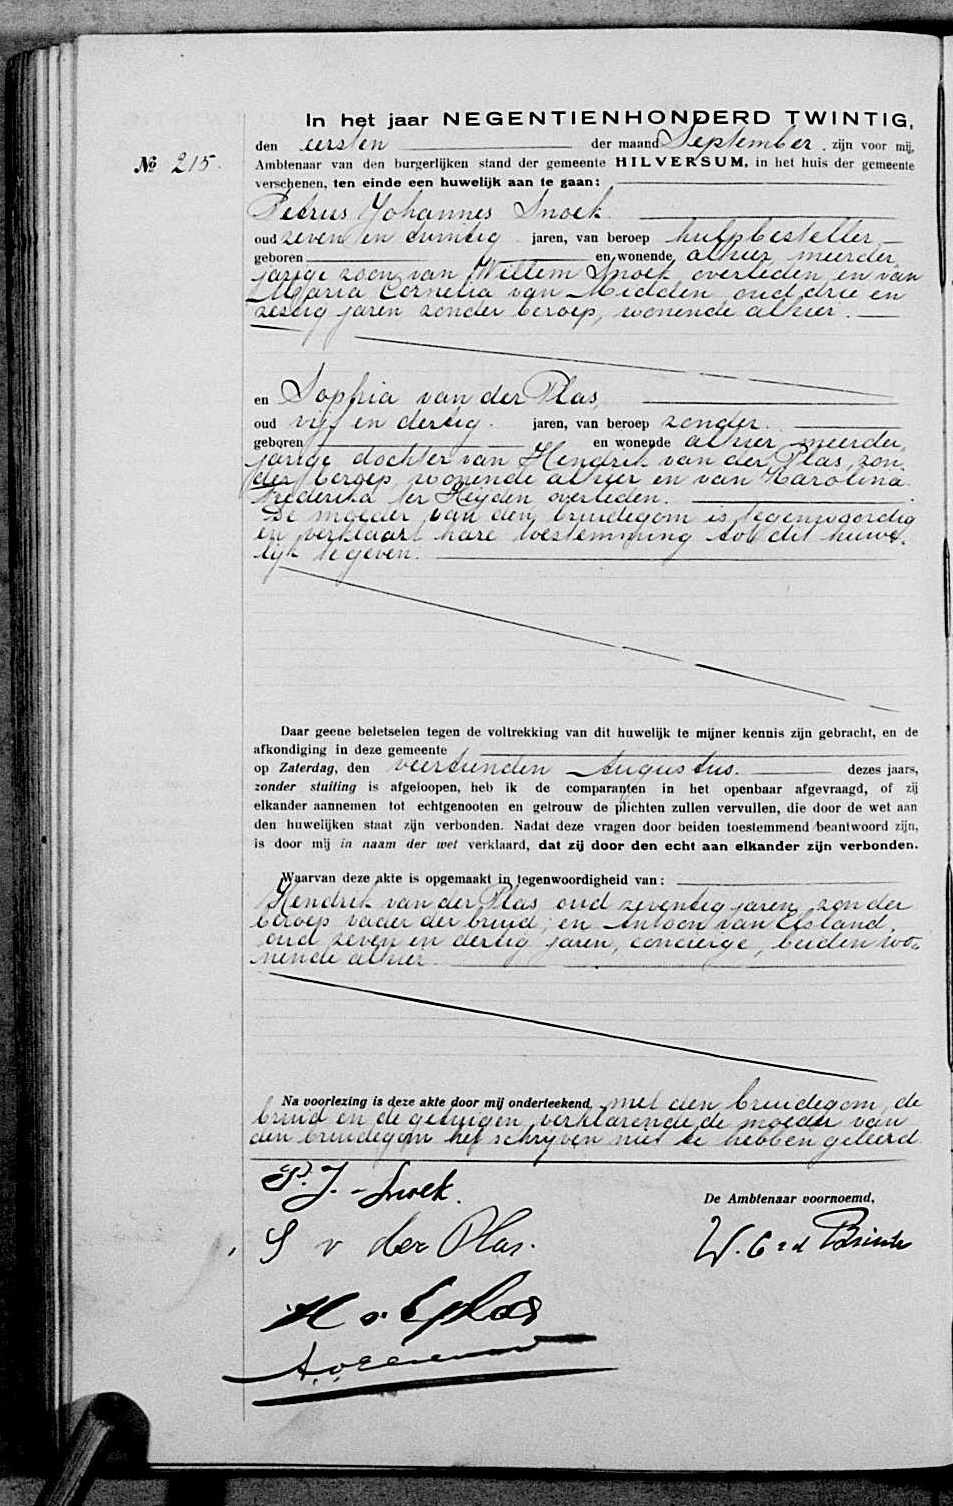 In het jaar NEGENTIENHONDERD TWINTIG,
den eersten der maand September zijn voor mij,
№ 215.
Ambtenaar van den burgerlijken stand der gemeente HILVERSUM, in het huis der gemeente
verschenen, ten einde een huwelijk aan te gaan:
Petrus Johannes Snoek
oud zeven en twintig jaren, van beroep hulpbesteller
geboren en wonende alhier meerder
jarige zoon van Willem Snoek overleden en van
Maria Cornelia van Midden oud drie en
zestig jaren zonder beroep, wonende alhier.
en Sophia van der Plas,
oud vijf en dertig. jaren, van beroep zonder.
geboren en wonende alhier meerder,
jarige dochter van Hendrik van der Plas, zon,
der beroep, wonende alhier en van Karolina
Frederika ter Heijden overleden.
De moeder van den bruidegom is tegenwoordig
en verklaart hare toestemming tot dit huwe,
lijk te geven.
Daar geene beletselen tegen de voltrekking van dit huwelijk te mijner kennis zijn gebracht, en de
afkondiging in deze gemeente
op Zaterdag, den veertienden Augustus. dezes jaars,
zonder stuiting is afgeloopen, heb ik de comparanten in het openbaar afgevraagd, of zij
elkander aannemen tot echtgenooten en getrouw de plichten zullen vervullen, die door de wet aan
den huwelijken staat zijn verbonden. Nadat deze vragen door beiden toestemmend beantwoord zijn,
is door mij in naam der wet verklaard, dat zij door den echt aan elkander zijn verbonden.
Waarvan deze akte is opgemaakt in tegenwoordigheid van:
Hendrik van der Plas oud zeventig jaren, zonder
beroep vader der bruid, en Antoon van Elsland,
oud zeven en dertig jaren, concierge, beiden wo,
nende alhier.
Na voorlezing is deze akte door mij onderteekend, met den bruidegom, de
bruid en de getuigen, verklarende de moeder van
den bruidegom het schrijven niet te hebben geleerd
P. J. Snoek.
De Ambtenaar voornoemd,
S v der Plas.
W.
H v d plas
A. v.